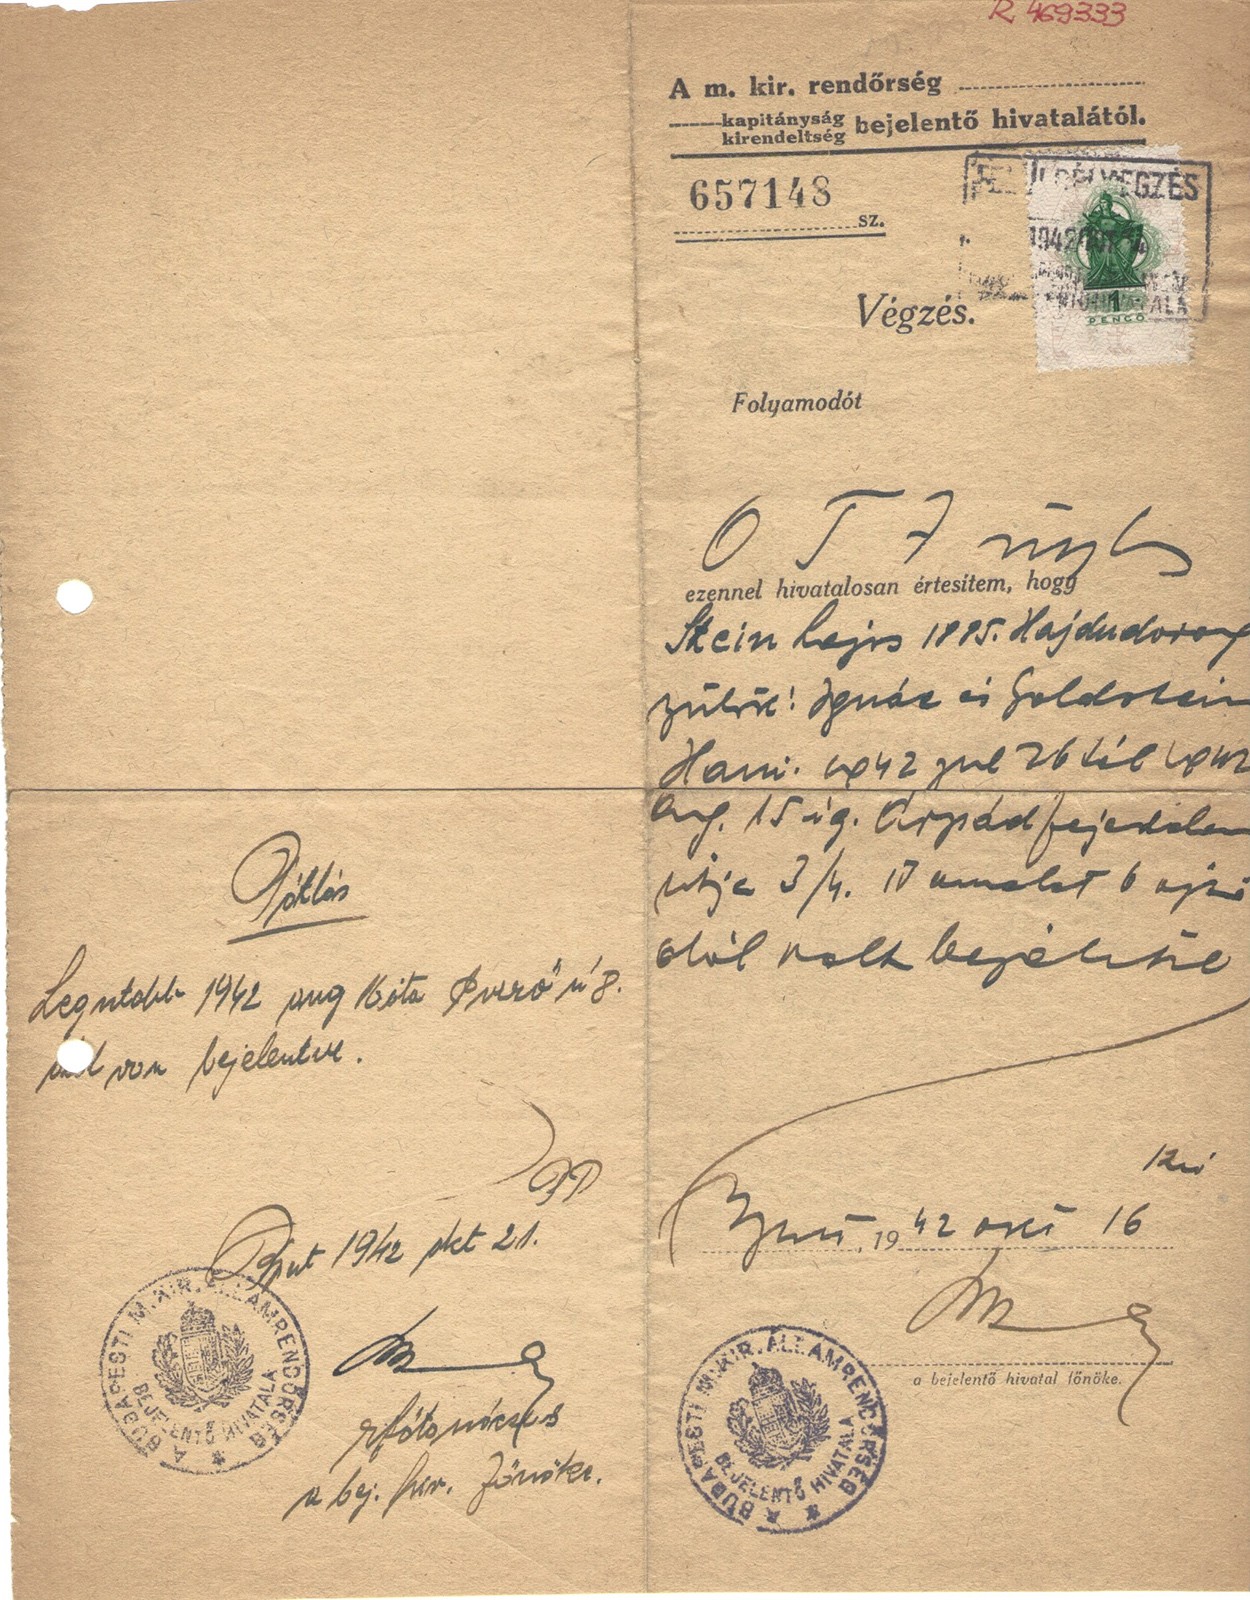 R 469333
A m. kir. rendőrség
kapitányság
kirendeltség bejelentő hivatalától.
657148 sz.
FELÜLBÉLYEGZÉS
1942
1
PENGŐ
Végzés.
Folyamodót
O T I
ezennel hivatalosan értesítem, hogy
Stein Lajos 1885. Hajdudorog
szülök: Ignác és Goldstein
Hani. 1942 jul 26 tól 1942
aug. 15 ig. Árpád fejedelem
utja 3/4. IV emelet 6 ajtó
alól volt bejelentve
1942 okt 16
a bejelentő hivatal főnöke.
A BUDAPESTI M. KIR. ÁLLAMRENDŐRSÉG
BEJELENTŐ HIVATALA
Pótlás
Legutobb 1942 aug 16 óta ú 8.
van bejelentve.
Bpest 1942 okt 21.
a bej. hiv. főnöke.
A BUDAPESTI M. KIR. ÁLLAMRENDŐRSÉG
BEJELENTŐ HIVATALA